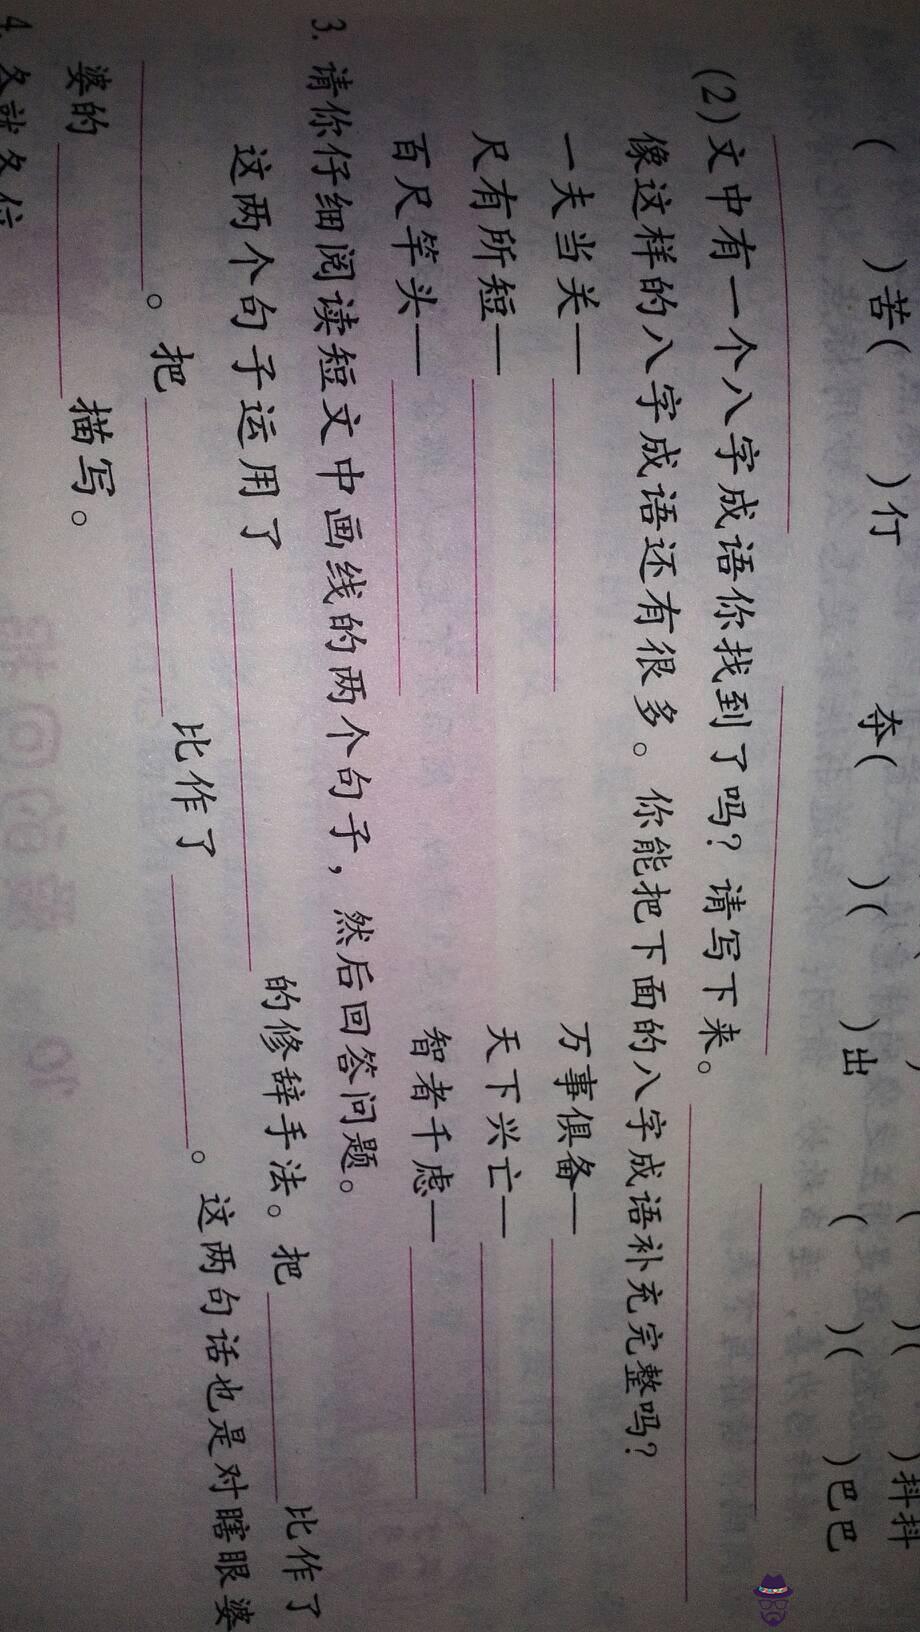 )(        )抖抖
(        )苦(        )仃        夺(        )(        )出        (        )(        )巴巴
(2)文中有一个八字成语你找到了吗？请写下来。
像这样的八字成语还有很多。你能把下面的八字成语补充完整吗？
一夫当关—        万事俱备—
尺有所短—        天下兴亡—
百尺竿头—        智者千虑—
3. 请你仔细阅读短文中画线的两个句子，然后回答问题。
这两个句子运用了        的修辞手法。把        比作了
        。把        比作了        。这两句话也是对瞎眼婆
婆的        描写。
4.